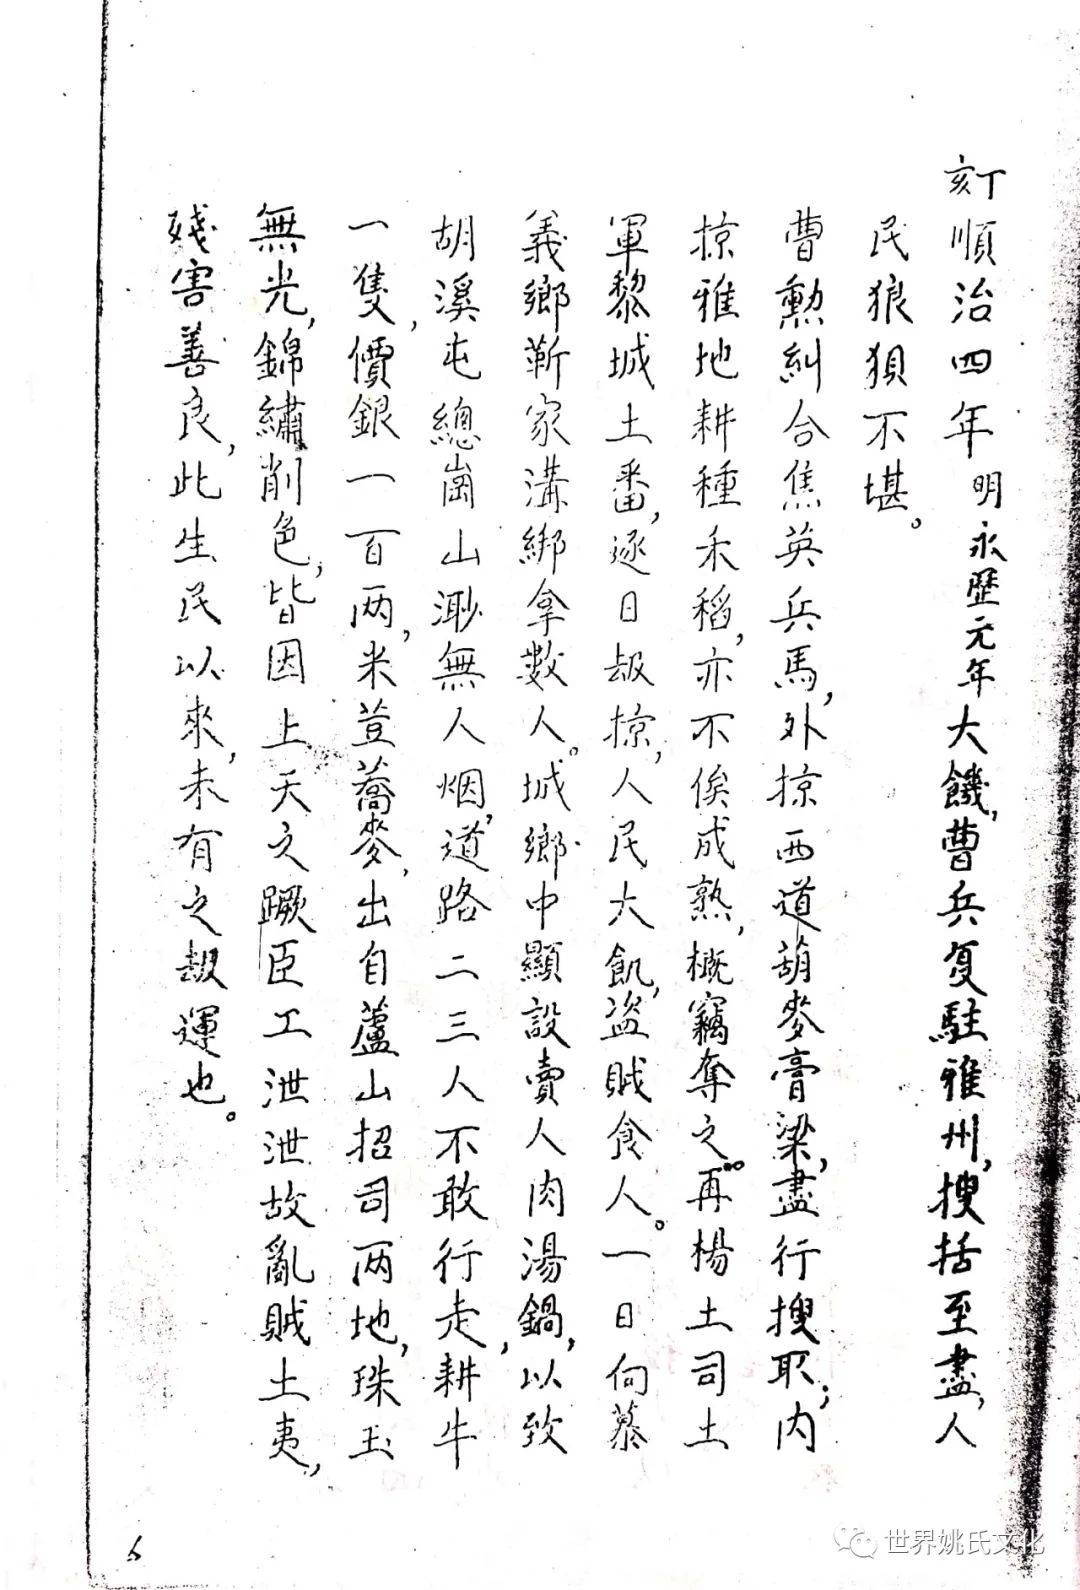 丁亥順治四年明永歷元年大饑,曹兵复駐雅州,搜括至盡,人
民狼狽不堪。
曹勲糾合焦英兵馬,外掠西道葫麥膏梁,盡行搜取;内
掠雅地耕種禾稻,亦不俟成熟,概竊奪之。再楊土司土
軍黎城土番,逐日刼掠,人民大飢,盗贼食人。一日向慕
義鄉靳家溝綁拿數人。城鄉中顯設賣人肉湯鍋,以致
胡溪屯總崗山渺無人烟,道路二三人不敢行走,耕牛
一隻,價銀一百两,米荳蕎麥,出自蘆山招司两地,珠玉
無光,錦繡削色,皆因上天之蹶臣工泄泄故亂賊土夷,
残害善良,此生民以來,未有之刼運也。
6
世界姚氏文化